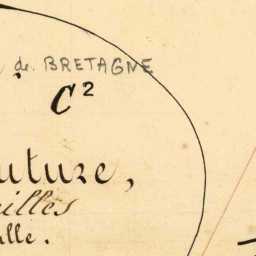 de BRETAGNE
C²
uture,
illes
lle.